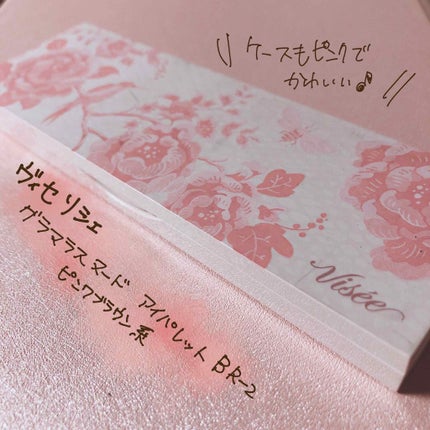 \\ ケースもピンクで
かわいい♪ //
Visée
ヴィセ リシェ
グラマラスヌード アイパレット BR-2
ピンクブラウン系